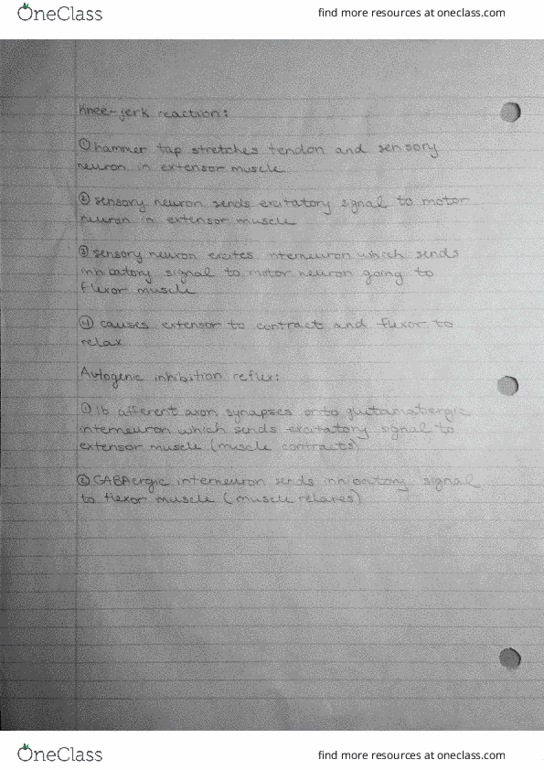 OneClass
find more resources at oneclass.com
Knee-jerk reaction:
① hammer tap stretches tendon and sensory
neuron in extensor muscle
② sensory neuron sends excitatory signal to motor
neuron in extensor muscle
③ sensory neuron excites interneuron which sends
inhibatory signal to motor neuron going to
flexor muscle
④ causes extensor to contract and fluxor to
relax
Autogenic inhibition reflux:
① 1b afferent axon synapses onto glutamatergic
interneuron which sends excitatory signal to
extensor muscle (muscle contracts)
② GABAergic interneuron sends inhibatory signal
to flexor muscle (muscle relaxes)
OneClass
find more resources at oneclass.com